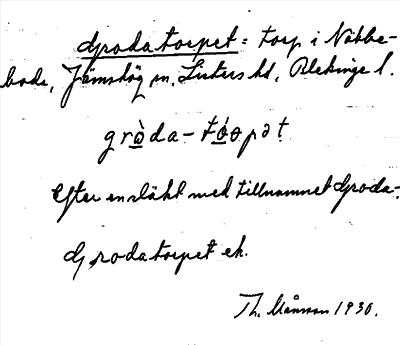 Grodatorpet = torp i Näbbe-
boda, Jämshög sn, Listers hd, Blekinge l.
gròda-tóɵpət.
Efter en släkt med tillnamnet Groda-.
Grodatorpet ek.
Th. Månsson 1930.